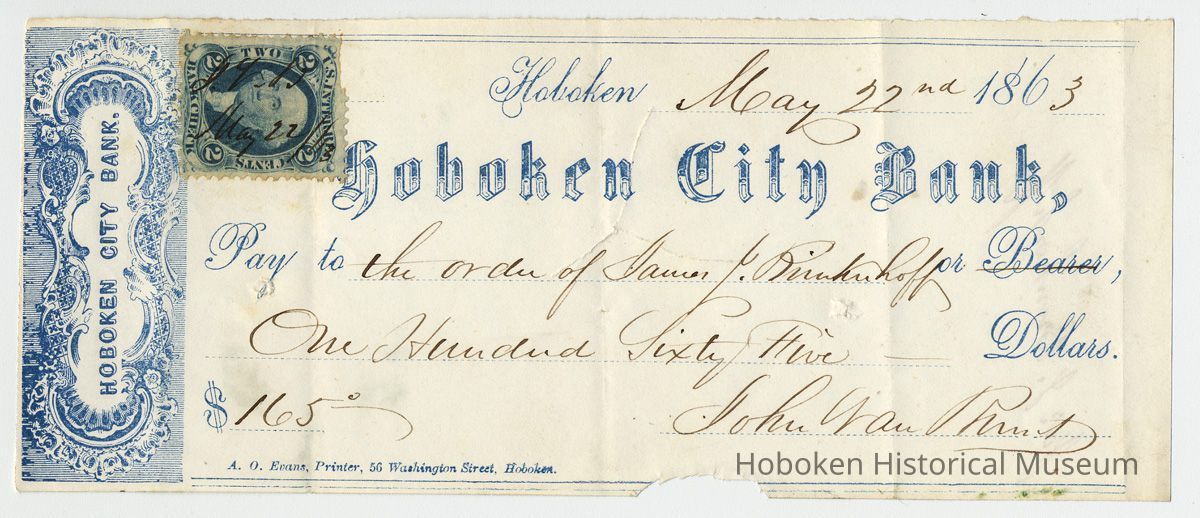 HOBOKEN CITY BANK.
TWO
2 2
BANK CHECK
U.S. INTER. REV.
J V. B
May 22
2 CENTS 2
Hoboken May 22nd 1863
Hoboken City Bank,
Pay to the order of James J. Brinkerhoff or Bearer,
One Hundred Sixty Five — Dollars.
$ 165
John Van Brunt
A. O. Evans, Printer, 56 Washington Street, Hoboken.
Hoboken Historical Museum